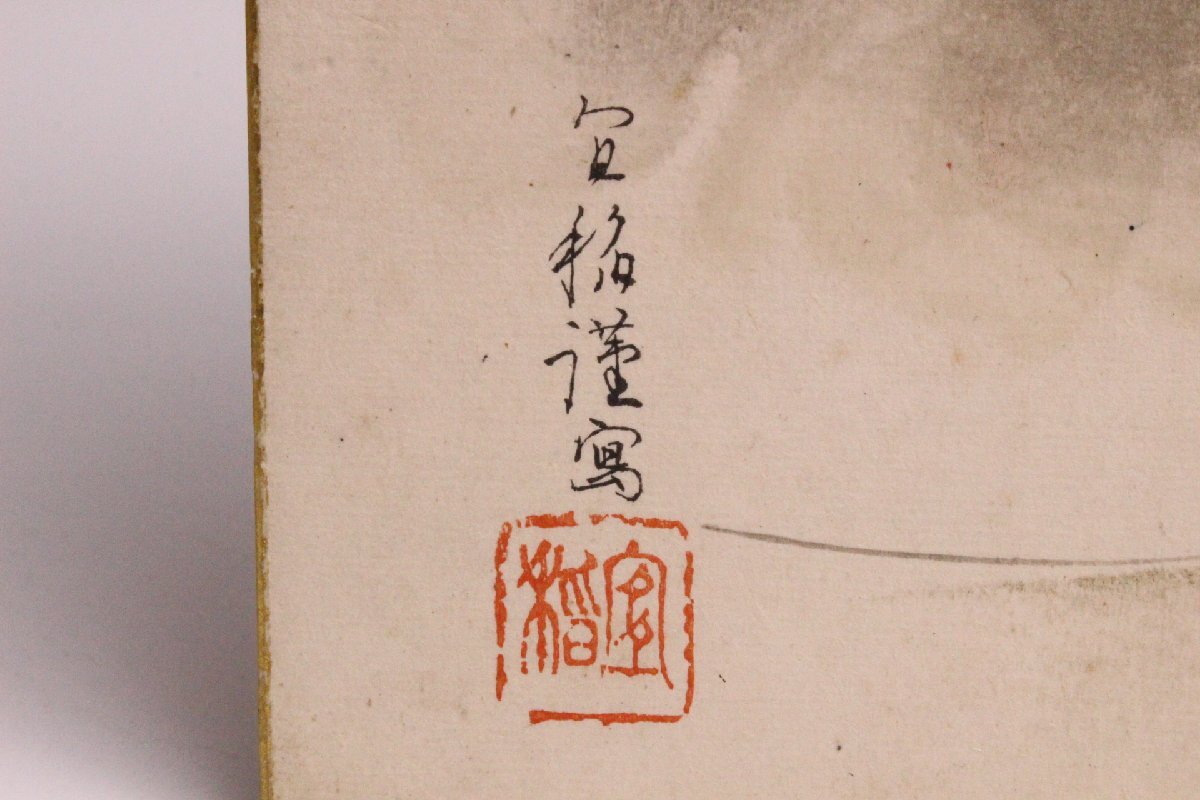 宜稲謹寫
宜稲